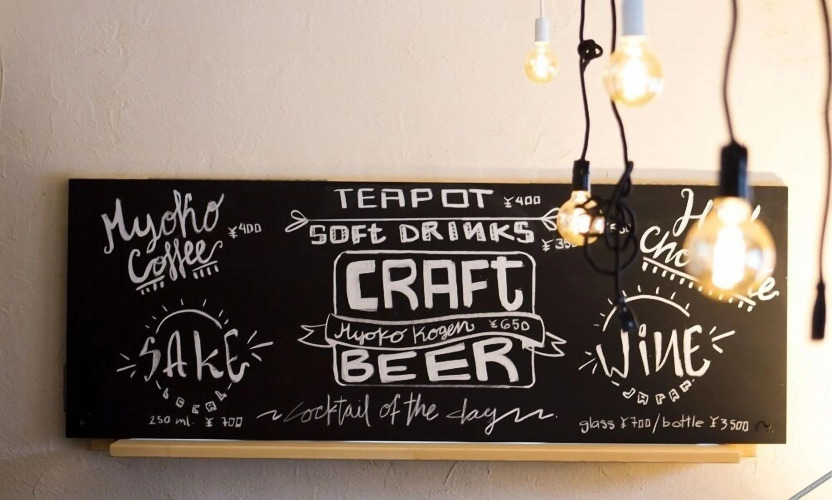 Myoko
Coffee
¥400
TEAPOT ¥400
SOFt DRINKS
CRAFt
Myoko Kogen ¥650
BEER
SAKE
LOCAL
250 ml. ¥700
cocktail of the day
WiNE
JAPAN
glass ¥700/bottle ¥3500